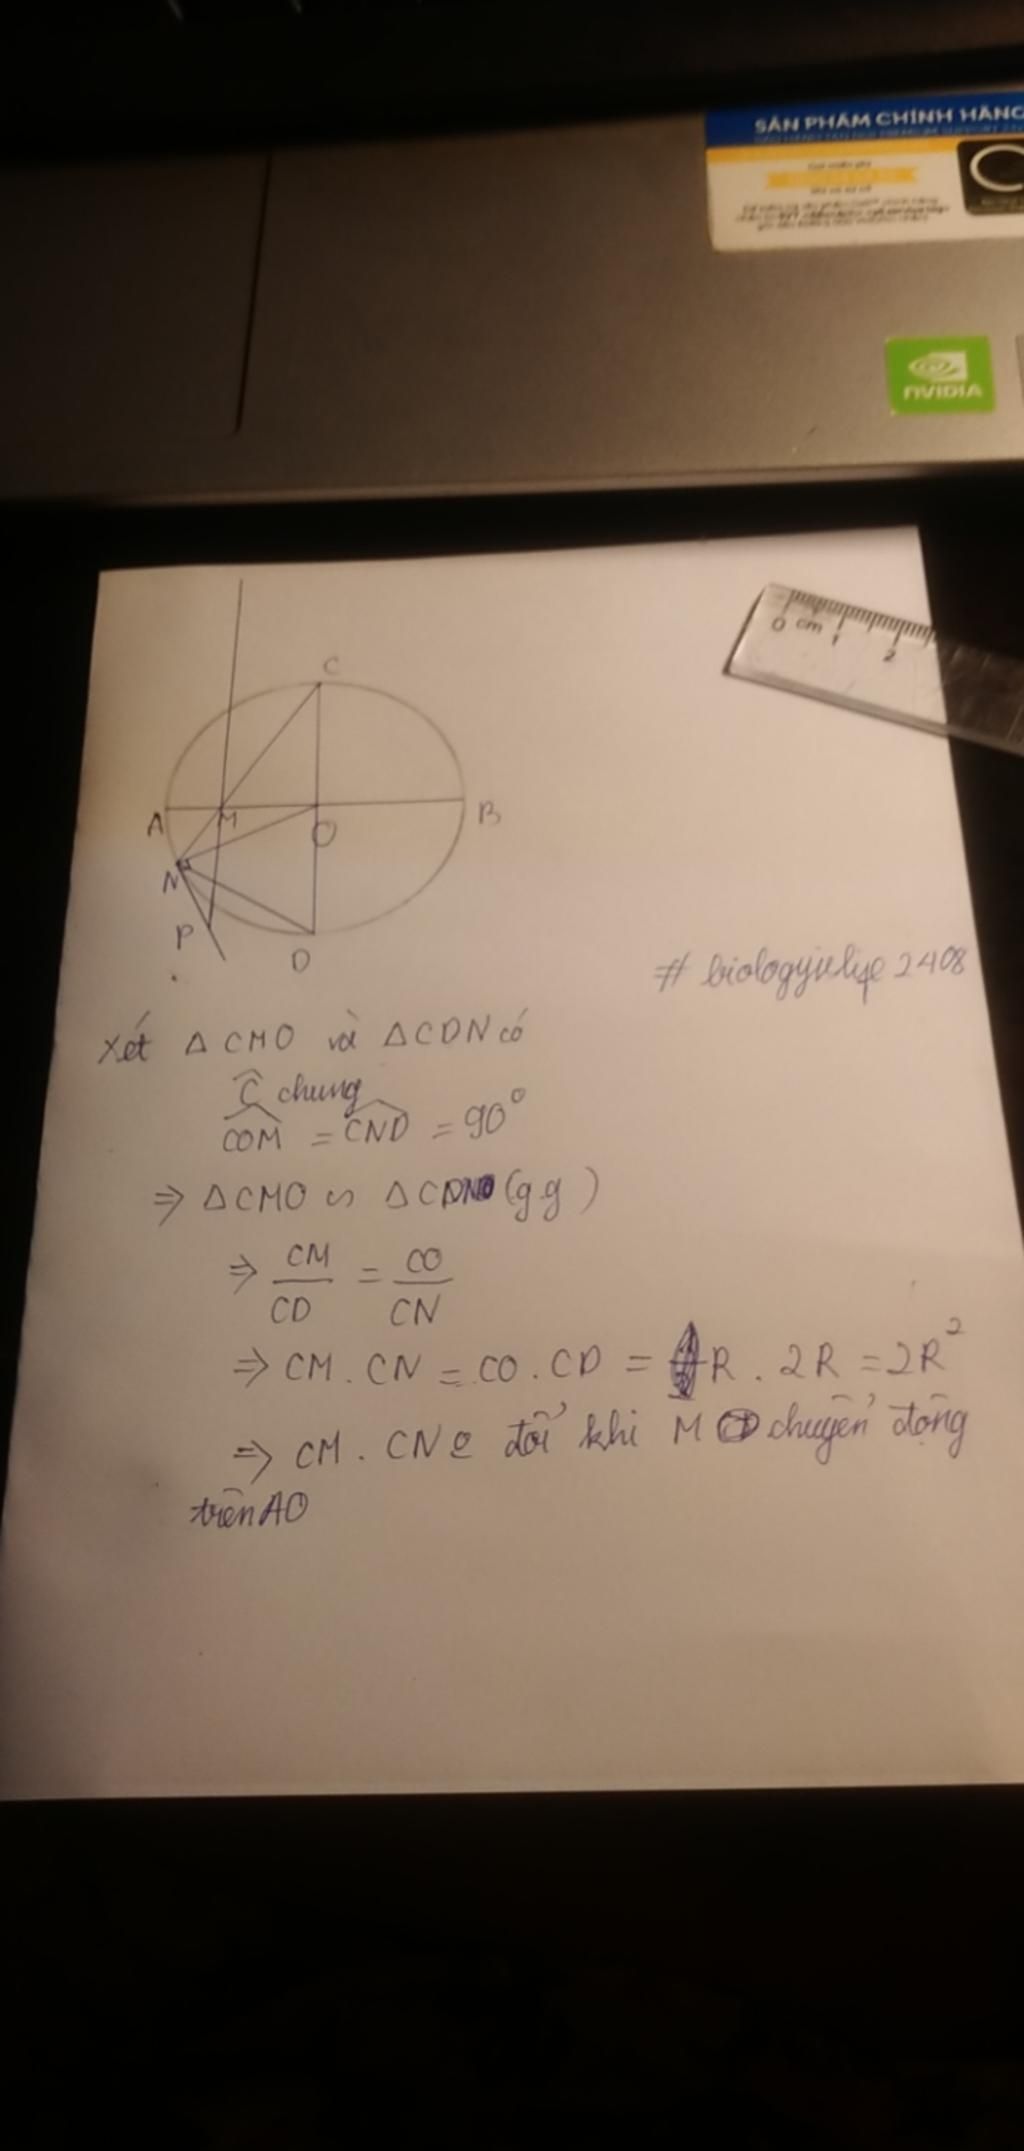 SẢN PHẨM CHÍNH HÃNG
NVIDIA
0 cm 1 2
C
A M O B
N
P
D
# biologyjelye 2408
Xét Δ CMO và Δ CDN có
Ĉ chung
COM = CND = 90°
⇒ Δ CMO ∽ Δ CDN (g.g)
⇒ CM/CD = CO/CN
⇒ CM . CN = CO . CD = R . 2R = 2R²
⇒ CM . CN đổi khi M chuyển động
trên AO